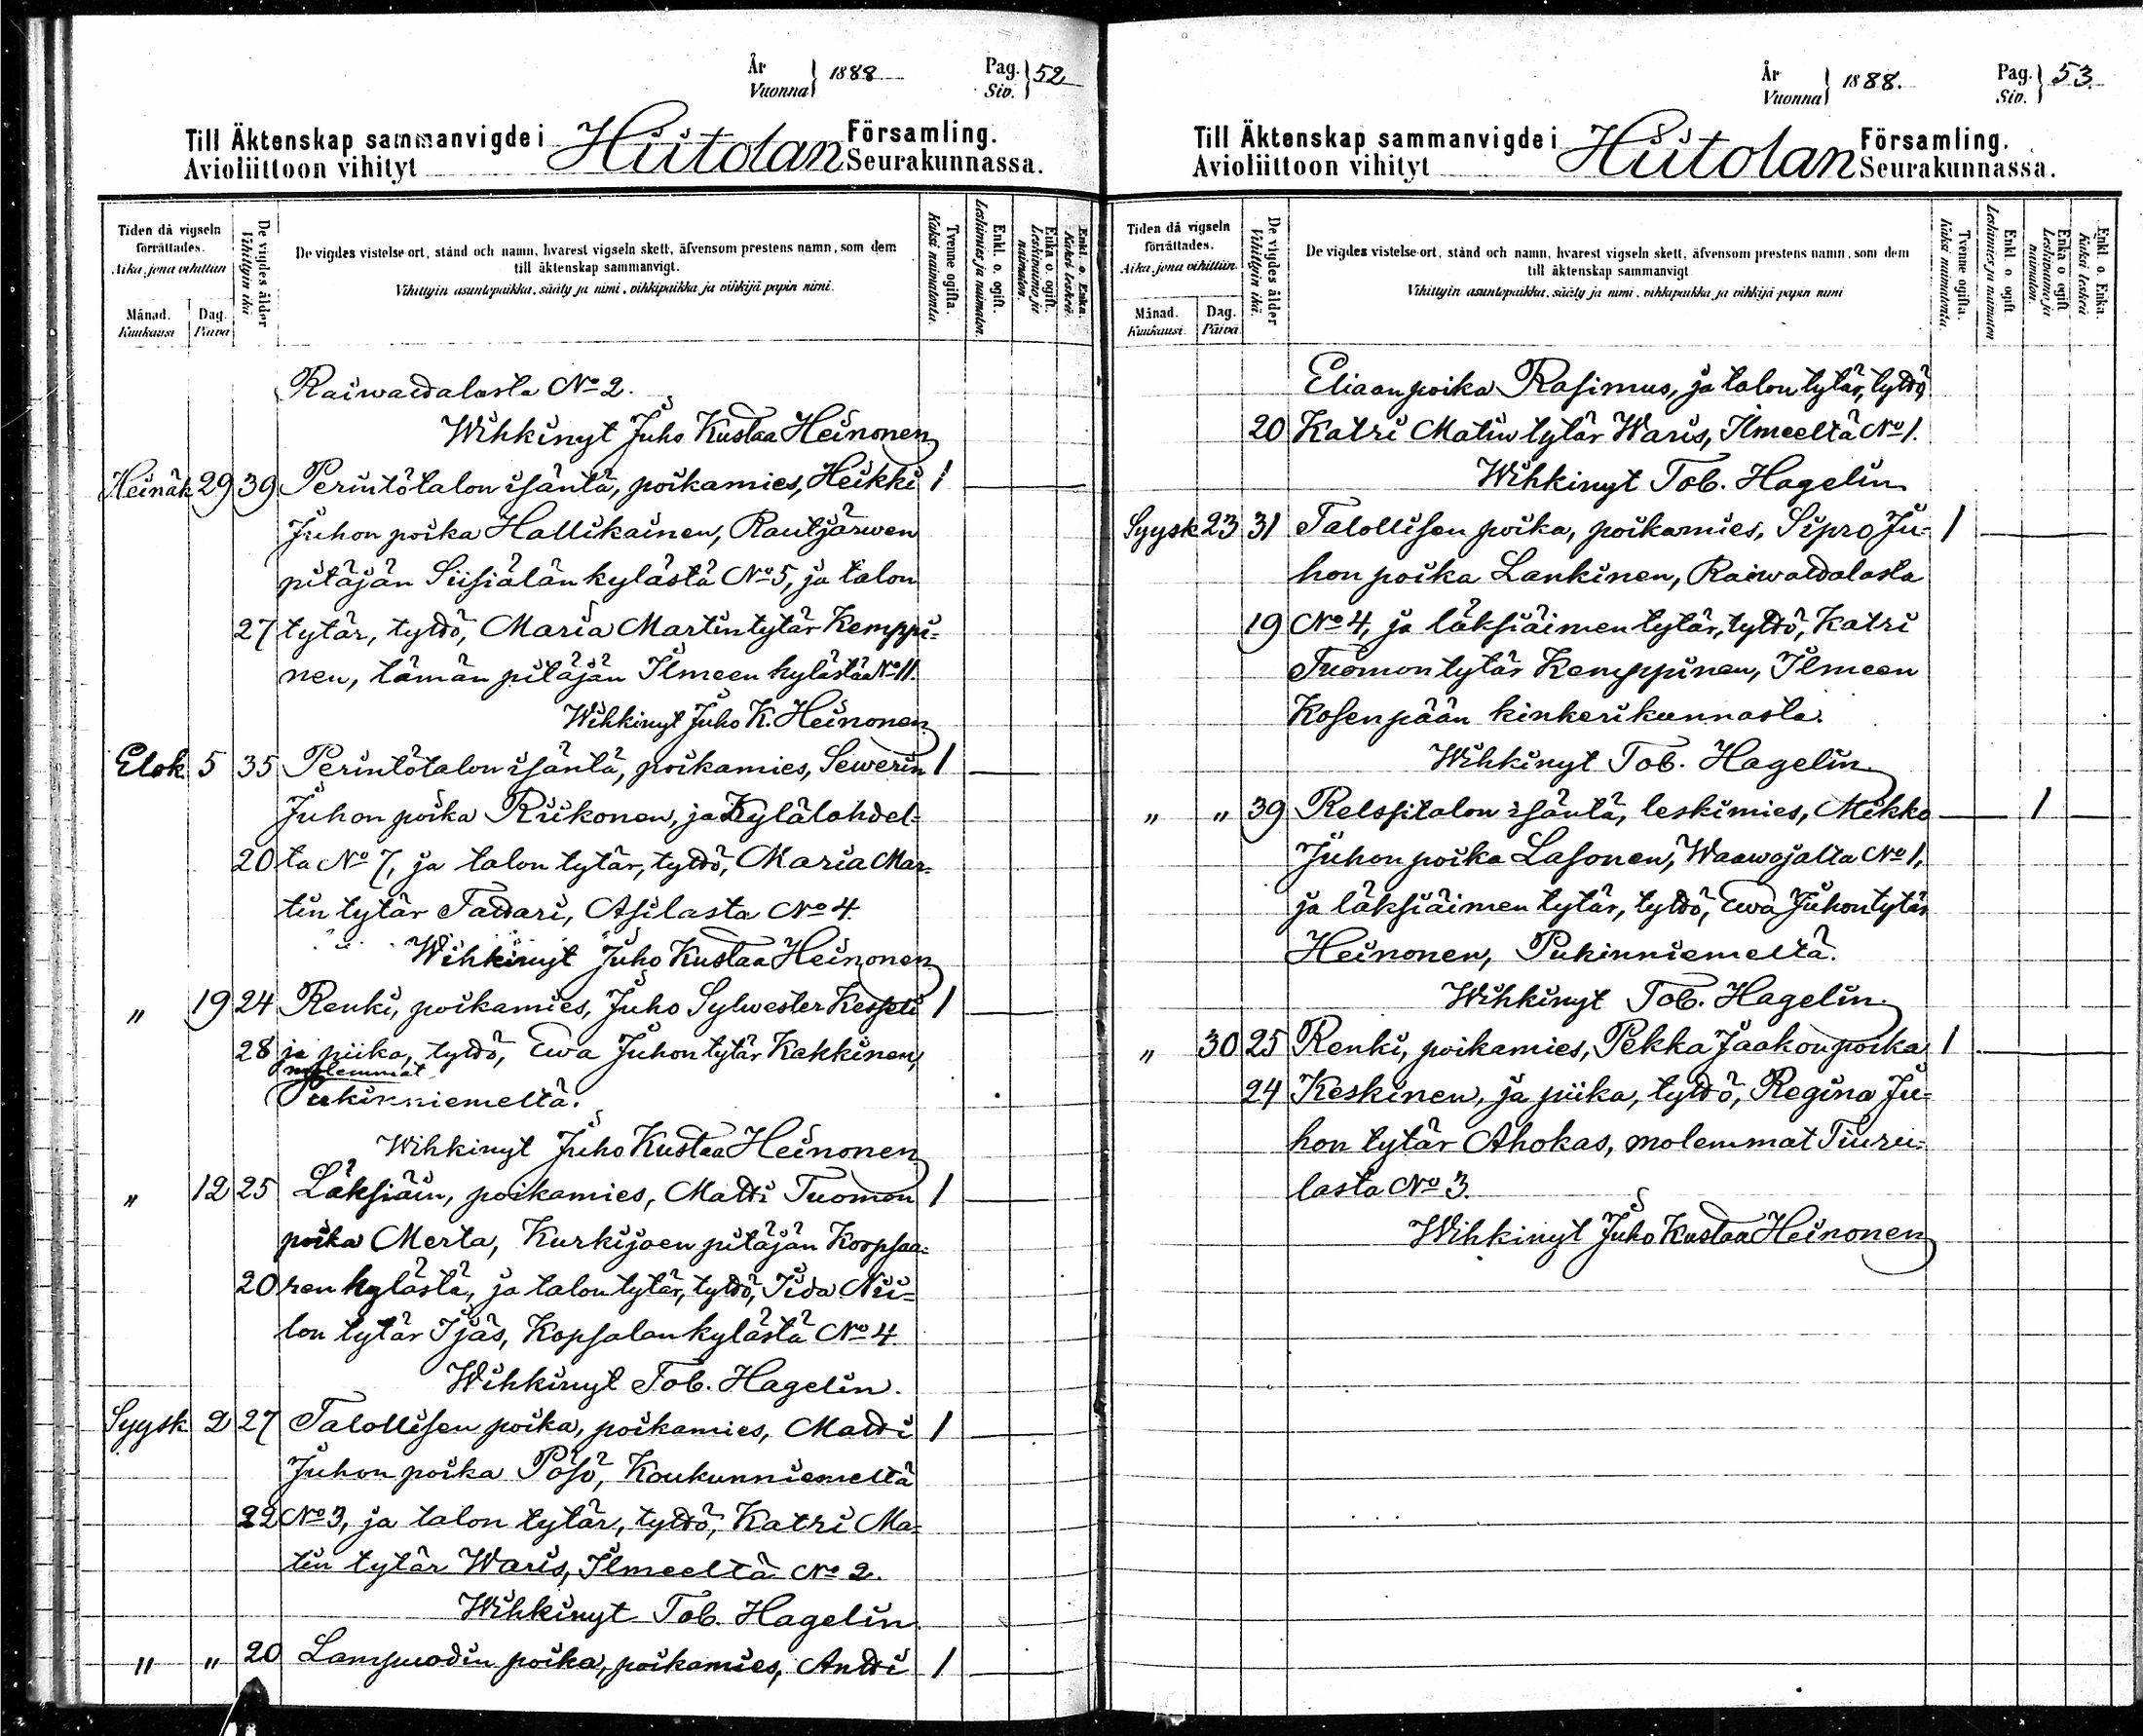 År
Vuonna } 1888
Pag.
Siv. } 52
Till Äktenskap sammanvigde i Hiitolan Församling.
Avioliittoon vihityt Seurakunnassa.
Tiden då vigseln förrättades.
Aika, jona vihittiin
Månad.
Kuukausi
Dag.
Päivä
De vigdes ålder
Vihittyin ikä
De vigdes vistelse ort, stånd och namn, hvarest vigseln skett, äfvensom prestens namn, som dem
till äktenskap sammanvigt.
Vihittyin asuntopaikka, sääty ja nimi, vihkipaikka ja vihkijä papin nimi.
Tvenne ogifta.
Kaksi naimatonta.
Enkl. o. ogift.
Leskimies ja naimaton.
Enka o. ogift.
Leskivaimo ja naimaton.
Enkl. o. Enka.
Kaksi leskeä.
Raiwattalasta No 2.
Wihkinyt Juho Kustaa Heinonen
Heinäk 29 39 Perintötalon isäntä, poikamies, Heikki 1
Juhon poika Hallikainen, Rautjärwen
pitäjän Siisiälän kylästä No 5, ja talon
27 tytär, tyttö, Maria Martin tytär Kemppi-
nen, tämän pitäjän Ilmeen kylästä No 11.
Wihkinyt Juho K. Heinonen
Elok. 5 35 Perintötalon isäntä, poikamies, Sewerin 1
Juhon poika Riikonen, ja Kylälahdel-
20 ta No 7, ja talon tytär, tyttö, Maria Mar-
tin tytär Tattari, Asilasta No 4.
Wihkinyt Juho Kustaa Heinonen
" 19 24 Renki, poikamies, Juho Sylwester Kesseli 1
28 ja piika, tyttö, Ewa Juhon tytär Kakkinen,
molemmat
Pukinniemeltä.
Wihkinyt Juho Kustaa Heinonen
" 12 25 Läksiäin, poikamies, Matti Tuomon 1
poika Merta, Kurkijoen pitäjän Korpsaa-
20 ren kylästä, ja talon tytär, tyttö, Iida Nii-
lon tytär Ijäs, Kopsalan kylästä No 4.
Wihkinyt Tob. Hagelin.
Syysk 2 27 Talollisen poika, poikamies, Matti 1
Juhon poika Pösö, Koukunniemeltä
22 No 3, ja talon tytär, tyttö, Katri Ma-
tin tytär Waris, Ilmeeltä No 2.
Wihkinyt Tob. Hagelin
" " 20 Lampuodin poika, poikamies, Antti 1
År
Vuonna } 1888.
Pag.
Siv. } 53.
Till Äktenskap sammanvigde i Hiitolan Församling.
Avioliittoon vihityt Seurakunnassa.
Tiden då vigseln förrättades.
Aika, jona vihittiin.
Månad.
Kuukausi.
Dag.
Päivä
De vigdes ålder
Vihittyin ikä.
De vigdes vistelse-ort, stånd och namn, hvarest vigseln skett, äfvensom prestens namn, som dem
till äktenskap sammanvigt
Vihittyin asuntopaikka, sääty ja nimi, vihkipaikka ja vihkijä papin nimi
Tvenne ogifta.
Kaksi naimatonta.
Enkl. o. ogift
Leskimies ja naimaton
Enka o. ogift
Leskivaimo ja naimaton.
Enkl. o. Enka.
Kaksi leskeä
Eliaan poika Rasimus, ja talon tytär, tyttö,
20 Katri Matin tytär Waris, Ilmeeltä No 1.
Wihkinyt Tob. Hagelin
Syysk 23 31 Talollisen poika, poikamies, Sipro Ju- 1
hon poika Lankinen, Raiwattalasta
19 No 4, ja läksiäimen tytär, tyttö, Katri
Tuomon tytär Kemppinen, Ilmeen
Kosenpään kinkerikunnasta.
Wihkinyt Tob. Hagelin
" " 39 Relssitalon isäntä, leskimies, Mikko 1
Juhon poika Lasonen, Waawojalta No 1,
ja läksiäimen tytär, tyttö, Ewa Juhon tytär
Heinonen, Pukinniemeltä.
Wihkinyt Tob. Hagelin.
" 30 25 Renki, poikamies, Pekka Jaakon poika 1
24 Keskinen, ja piika, tyttö, Regina Ju-
hon tytär Ahokas, molemmat Tiuru-
lasta No 3.
Wihkinyt Juho Kustaa Heinonen